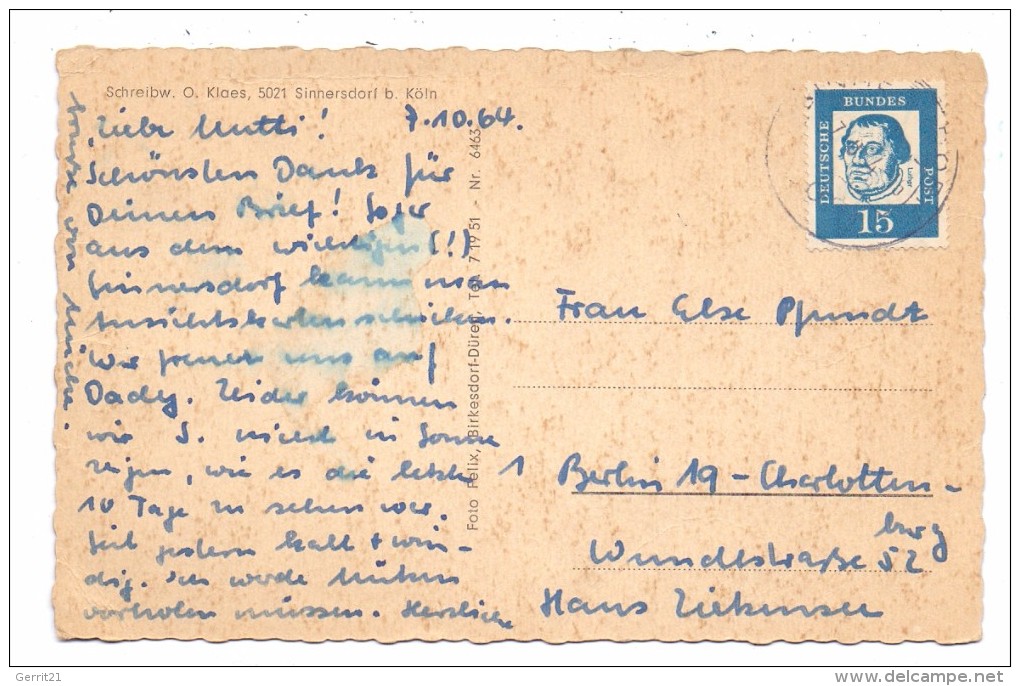 Schreibw. O. Klaes, 5021 Sinnersdorf b. Köln
7.10.64.
Liebe Mutti!
Schönsten Dank für
Deinen Brief! Sogar
aus dem wichtigen (!)
Sinnersdorf kann man
Ansichtskarten schicken.
Wir freuen uns auf
Dadey. Leider können
wir S. nicht in Sonne
zeigen, wie es die letzten
10 Tage zu sehen war.
Seit gestern kalt + win-
dig. Ich werde Mützen
vorholen müssen. Herzliche
von
Foto Felix, Birkesdorf-Düren, Tel. 7 19 51 - Nr. 6463
DEUTSCHE
BUNDES
POST
Luther
15
Frau Else Pfundt
1 Berlin 19 - Charlotten-
burg
Wundtstraße 52
Haus
Gerrit21
www.delcampe.net